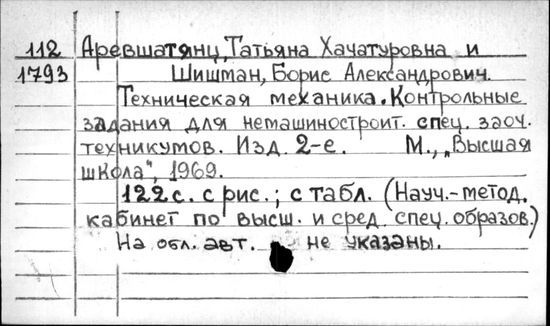 112 Аревшатянц, Татьяна Хачатуровна и
1793 Шишман, Борис Александрович.
Техническая механика. Контрольные
задания для немашиностроит. спец. заоч.
техникумов. Изд. 2-е. М., „Высшая
школа", 1969.
122 с. с рис.; с табл. (Науч.-метод.
кабинет по высш. и сред. спец. образов.)
На обл. авт. не указаны.